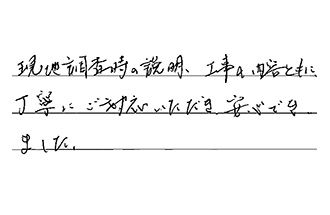 現地調査時の説明、工事の内容ともに
丁寧にご対応いただき、安心でき
ました。